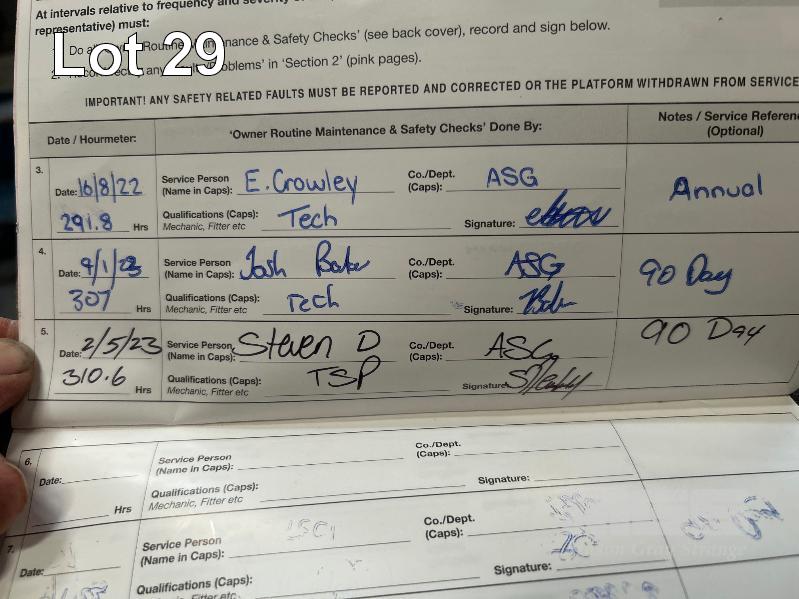 At intervals relative to frequency and severity
representative) must:
Lot 29
nance & Safety Checks' (see back cover), record and sign below.
in 'Section 2' (pink pages).
IMPORTANT! ANY SAFETY RELATED FAULTS MUST BE REPORTED AND CORRECTED OR THE PLATFORM WITHDRAWN FROM SERVICE
Date / Hourmeter: 'Owner Routine Maintenance & Safety Checks' Done By: Notes / Service Referen
(Optional)
3. Date: 16/8/22 Service Person E. Crowley Co./Dept. ASG Annual
(Name in Caps): (Caps):
291.8 Hrs Qualifications (Caps): Tech Signature:
Mechanic, Fitter etc
4. Date: 9/1/23 Service Person Josh Baker Co./Dept. ASG 90 Day
(Name in Caps): (Caps):
307 Hrs Qualifications (Caps): Tech Signature:
Mechanic, Fitter etc
5. Date: 2/5/23 Service Person Steven D Co./Dept. ASG 90 Day
(Name in Caps): (Caps):
310.6 Hrs Qualifications (Caps): TSP Signature
Mechanic, Fitter etc
6. Date: Service Person Co./Dept.
(Name in Caps): (Caps):
Hrs Qualifications (Caps): Signature:
Mechanic, Fitter etc
7. Date: Service Person Co./Dept.
(Name in Caps): (Caps):
Qualifications (Caps): Signature:
Fitter etc